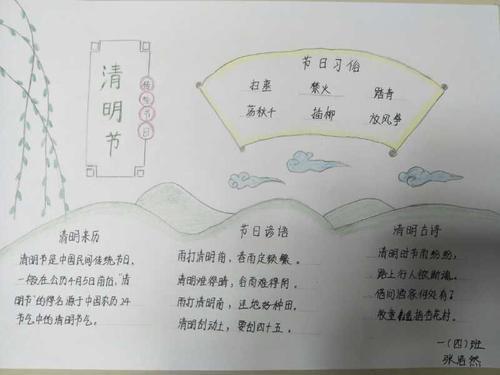 清明节
传统节日
节日习俗
扫墓 禁火 踏青
荡秋千 插柳 放风筝
清明来历
清明节是中国民间传统节日。
一般在公历4月5日前后，“清
明节”的得名源于中国农历24
节气中的清明节气。
节日谚语
雨打清明前，春雨定频繁。
清明难得晴，谷雨难得阴。
雨打清明前，洼地好种田。
清明刮动土，要刮四十五。
清明古诗
清明时节雨纷纷，
路上行人欲断魂。
借问酒家何处有？
牧童遥指杏花村。
一（四）班
张浩然